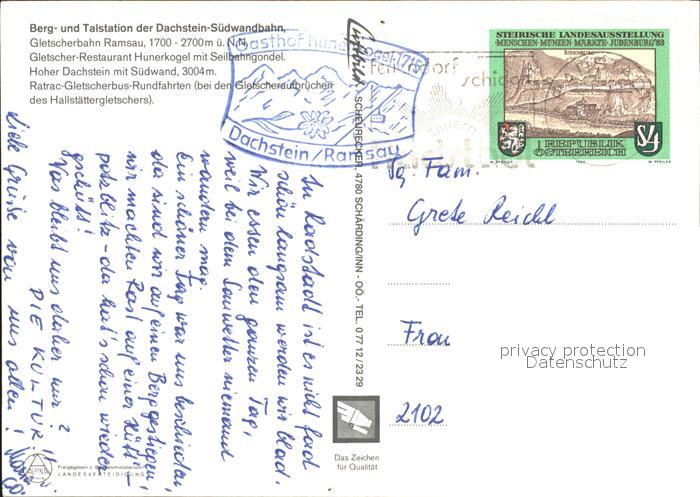 Berg- und Talstation der Dachstein-Südwandbahn,
Gletscherbahn Ramsau, 1700 - 2700 m ü. N.N.
Gletscher-Restaurant Hunerkogel mit Seilbahngondel.
Hoher Dachstein mit Südwand, 3004m.
Ratrac-Gletscherbus-Rundfahrten (bei den Gletscheraufbrüchen
des Hallstättergletschers).
Gasthof Hunerkogel
Dachstein/Ramsau
In Radstadt ist es nicht fad
schön langsam werden wir blad.
Wir essen den ganzen Tag,
weil bei dem Sauwetter niemand
wandern mag.
Ein schöner Tag war uns beschieden,
da sind wir auf einen Berg gestiegen,
wir machten Rast auf einer Hütt'-
potz blitz - da hat's schon wieder
geschütt!
Was bleibt uns daher nur?
DIE KULTUR!!
Liebe Grüße von uns allen!
Luftbild
SCHEURECKER, 4780 SCHÄRDING/INN - OÖ,- TEL. 0 77 12 / 23 29
Das Zeichen
für Qualität
Freigegeben v. Bundesministerium f.
LANDESVERTEIDIGUNG
STEIRISCHE LANDESAUSSTELLUNG
·MENSCHEN·MÜNZEN·MÄRKTE·JUDENBURG'89
JUDENBURG
S 4
REPUBLIK
ÖSTERREICH
W. PFEILER
1989
W. PFEILER
Tauern
Fam.
Grete Reichl
Frau
2102
privacy protection
Datenschutz